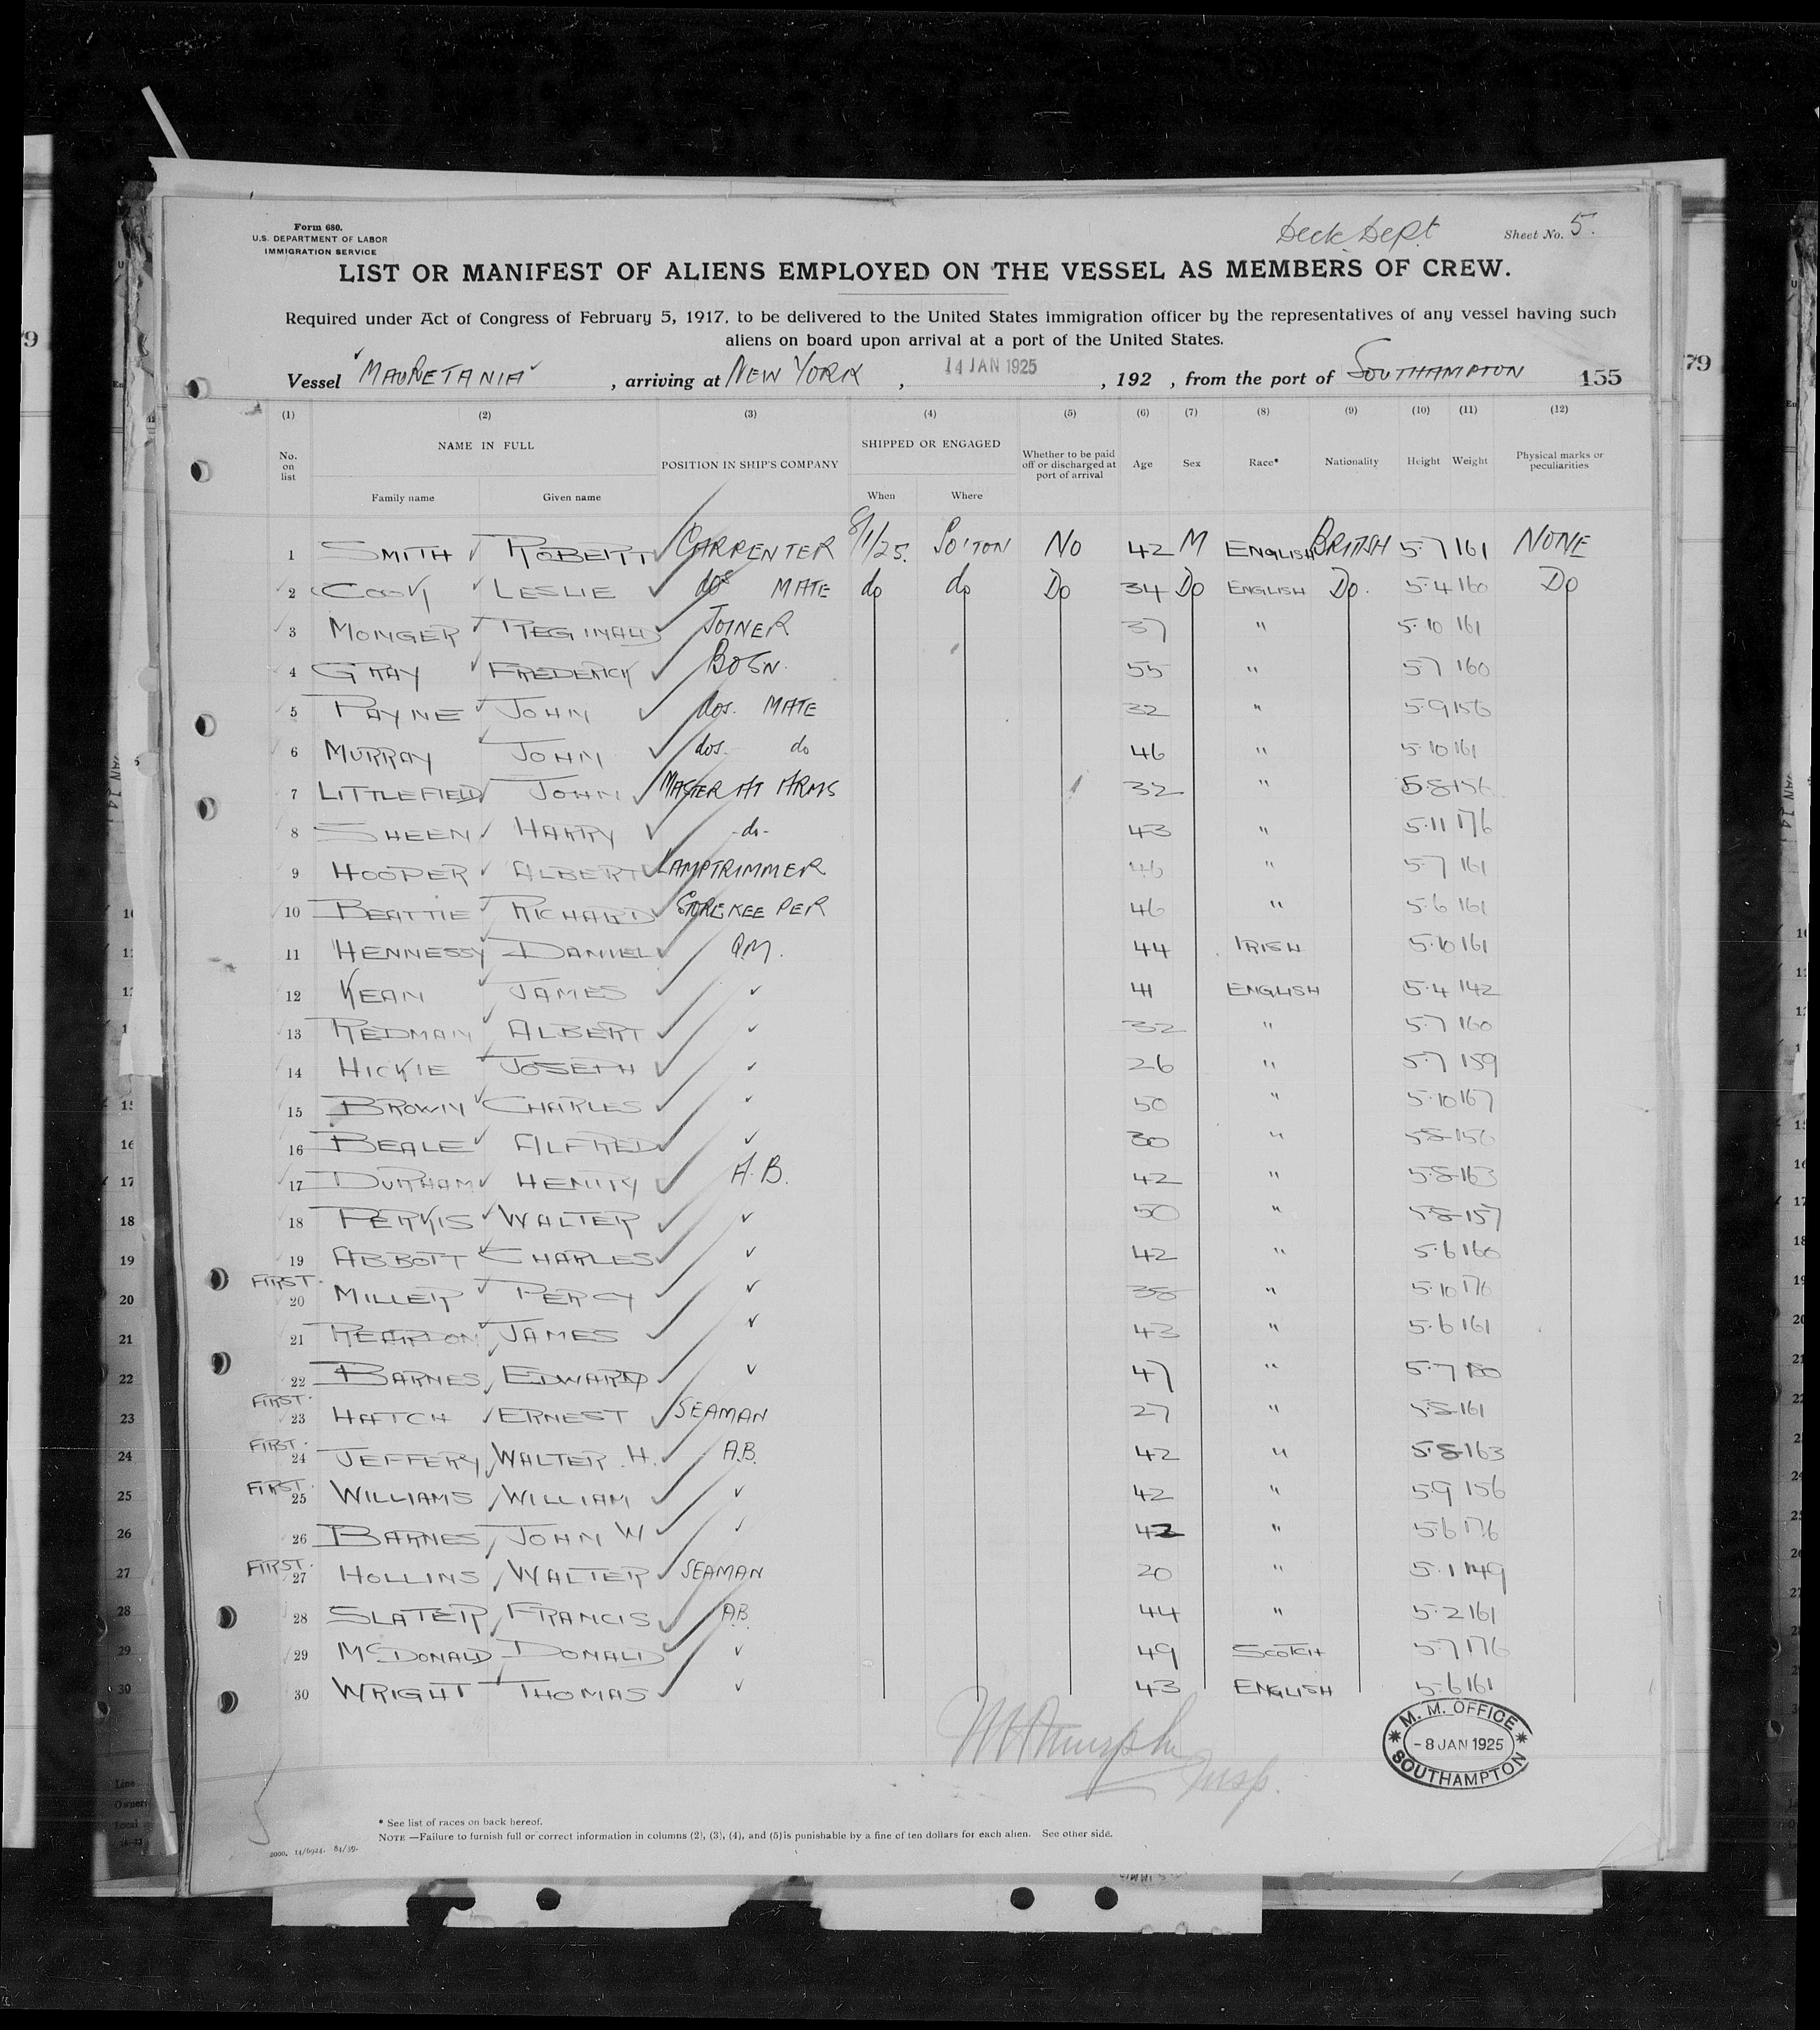 Form 680.
U.S. DEPARTMENT OF LABOR
IMMIGRATION SERVICE
Deck Dept
Sheet No. 5.
LIST OR MANIFEST OF ALIENS EMPLOYED ON THE VESSEL AS MEMBERS OF CREW.
Required under Act of Congress of February 5, 1917, to be delivered to the United States immigration officer by the representatives of any vessel having such
aliens on board upon arrival at a port of the United States.
Vessel "MAURETANIA", arriving at NEW YORK, 14 JAN 1925, 192 , from the port of SOUTHAMPTON 155
(1) (2) (3) (4) (5) (6) (7) (8) (9) (10) (11) (12)
No. on list NAME IN FULL POSITION IN SHIP'S COMPANY SHIPPED OR ENGAGED Whether to be paid off or discharged at port of arrival Age Sex Race* Nationality Height Weight Physical marks or peculiarities
Family name Given name When Where
1 SMITH ROBERT CARPENTER 8/1/25. SO'TON NO 42 M ENGLISH BRITISH 5·7 161 NONE
2 COOK LESLIE dos MATE do do DO 34 DO ENGLISH DO. 5·4 160 DO
3 MONGER REGINALD JOINER 37 " 5·10 161
4 GRAY FREDERICK BOSN. 55 " 5·7 160
5 PAYNE JOHN dos. MATE 32 " 5·9 156
6 MURRAY JOHN dos. do 46 " 5·10 161
7 LITTLEFIELD JOHN MASTER AT ARMS 32 " 5·8 156
8 SHEEN HARRY -do- 43 " 5·11 176
9 HOOPER ALBERT LAMPTRIMMER 46 " 5·7 161
10 BEATTIE RICHARD STOREKEEPER 46 " 5·6 161
11 HENNESSY DANIEL Q.M. 44 IRISH 5·10 161
12 KEAN JAMES ✓ 41 ENGLISH 5·4 142
13 REDMAN ALBERT ✓ 32 " 5·7 160
14 HICKIE JOSEPH ✓ 26 " 5·7 159
15 BROWN CHARLES ✓ 50 " 5·10 167
16 BEALE ALFRED ✓ 30 " 5·8 156
17 DURHAM HENRY A.B. 42 " 5·8 163
18 PERKIS WALTER ✓ 50 " 5·8 157
19 ABBOTT CHARLES ✓ 42 " 5·6 160
FIRST. 20 MILLER PERCY ✓ 38 " 5·10 176
21 REARDON JAMES ✓ 43 " 5·6 161
22 BARNES EDWARD ✓ 47 " 5·7
FIRST. 23 HATCH ERNEST SEAMAN 27 " 5·8 161
FIRST. 24 JEFFERY WALTER .H. A.B. 42 " 5·8 163
FIRST. 25 WILLIAMS WILLIAM ✓ 42 " 5·9 156
26 BARNES JOHN W ✓ 42 " 5·6 176
FIRST. 27 HOLLINS WALTER SEAMAN 20 " 5·1 149
28 SLATER FRANCIS A.B. 44 " 5·2 161
29 McDONALD DONALD ✓ 49 SCOTCH 5·7 176
30 WRIGHT THOMAS ✓ 43 ENGLISH 5·6 161
Insp.
M. M. OFFICE
-8 JAN 1925
SOUTHAMPTON
* See list of races on back hereof.
NOTE —Failure to furnish full or correct information in columns (2), (3), (4), and (5) is punishable by a fine of ten dollars for each alien. See other side.
2000. 14/6924. 84/39.